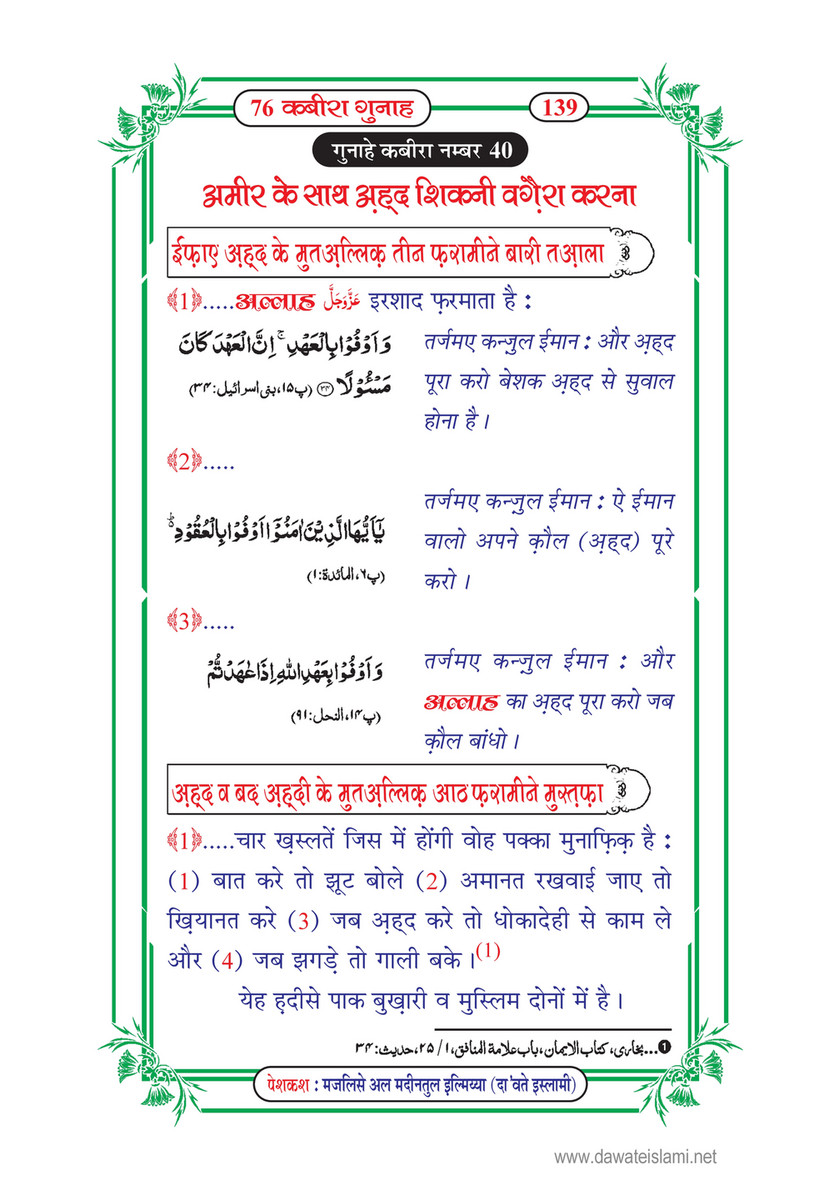 76 कबीरा गुनाह
139
गुनाहे कबीरा नम्बर 40
अमीर के साथ अ़ह्द शिकनी वग़ैरा करना
ईफ़ाए अ़ह्द के मुतअ़ल्लिक़ तीन फ़रामीने बारी तआ़ला
﴾1﴿.....अल्लाह عَزَّوَجَلَّ इरशाद फ़रमाता है :
وَاَوْفُوْا بِالْعَهْدِ ۚ اِنَّ الْعَهْدَ كَانَ
مَسْـُٔوْلًا ﴿۳۴﴾ (پ۱۵، بنی اسرائیل: ۳۴)
तर्जमए कन्ज़ुल ईमान : और अ़ह्द
पूरा करो बेशक अ़ह्द से सुवाल
होना है ।
﴾2﴿.....
يٰۤاَيُّهَا الَّذِيْنَ اٰمَنُوْۤا اَوْفُوْا بِالْعُقُوْدِ ؕ
(پ۶، المائدة: ۱)
तर्जमए कन्ज़ुल ईमान : ऐ ईमान
वालो अपने क़ौल (अ़ह्द) पूरे
करो ।
﴾3﴿.....
وَاَوْفُوْا بِعَهْدِ اللّٰهِ اِذَا عٰهَدْتُّمْ
(پ۱۴، النحل: ۹۱)
तर्जमए कन्ज़ुल ईमान : और
अल्लाह का अ़ह्द पूरा करो जब
क़ौल बांधो ।
अ़ह्द व बद अ़ह्दी के मुतअ़ल्लिक़ आठ फ़रामीने मुस्त़फ़ा
﴾1﴿.....चार ख़स्लतें जिस में होंगी वोह पक्का मुनाफ़िक़ है :
(1) बात करे तो झूट बोले (2) अमानत रखवाई जाए तो
ख़ियानत करे (3) जब अ़ह्द करे तो धोकादेही से काम ले
और (4) जब झगड़े तो गाली बके ।(1)
येह ह़दीसे पाक बुख़ारी व मुस्लिम दोनों में है ।
❶...بخاری، کتاب الایمان، باب علامة المنافق، ۱/ ۲۵، حدیث: ۳۴
पेशकश : मजलिसे अल मदीनतुल इल्मिय्या (दा'वते इस्लामी)
www.dawateislami.net